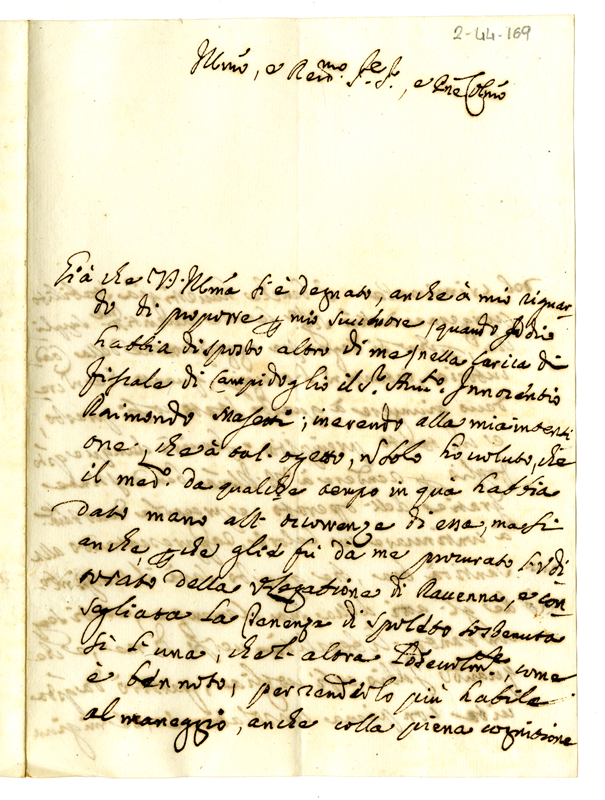 2-44-169
Illmo, e Revmo Sre Sre, e Prne Colmo
Già che V.S. Illma si è degnato, anche à mio riguar-
do di proporre p mio successore, quando Iddio
habbia disposto altro di me, nella Carica di
fiscale di Campidoglio il Sr. Innocentio
Raimondo Masetti; inerendo alla mia intenti
one, che à tal- ogetto, nò solo hò voluto, che
il medo. da qualche tempo in quà habbia
dato mano all- occorrenze di essa, mà si
anche, p che gli fù da me procurato l'Udi
torato della Legatione di Ravenna, e con
segliata la di Spoleto sostenuta
sì l-una, che l- altra, come
è ben noto, per renderlo più habile
al maneggio, anche colla piena cognitione